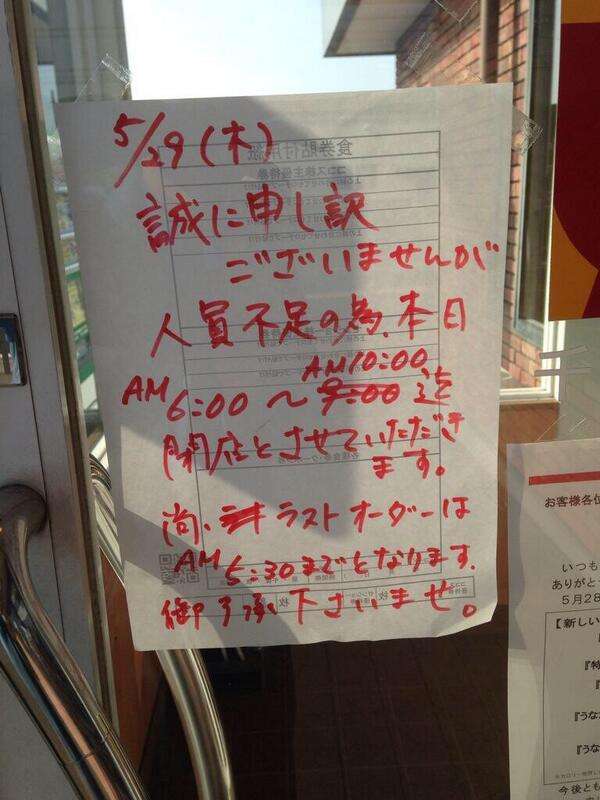 5/29(木)
誠に申し訳
ございませんが
人員不足の為、本日
AM10:00
AM6:00～9:00迄
閉店とさせていただき
ます。
尚、ラストオーダーは
AM5:30までとなります。
御了承下さいませ。
食券貼付用紙
お客様各位
いつも
ありがとう
5月28
【新しい
『特
『うな
『うな
今後とも